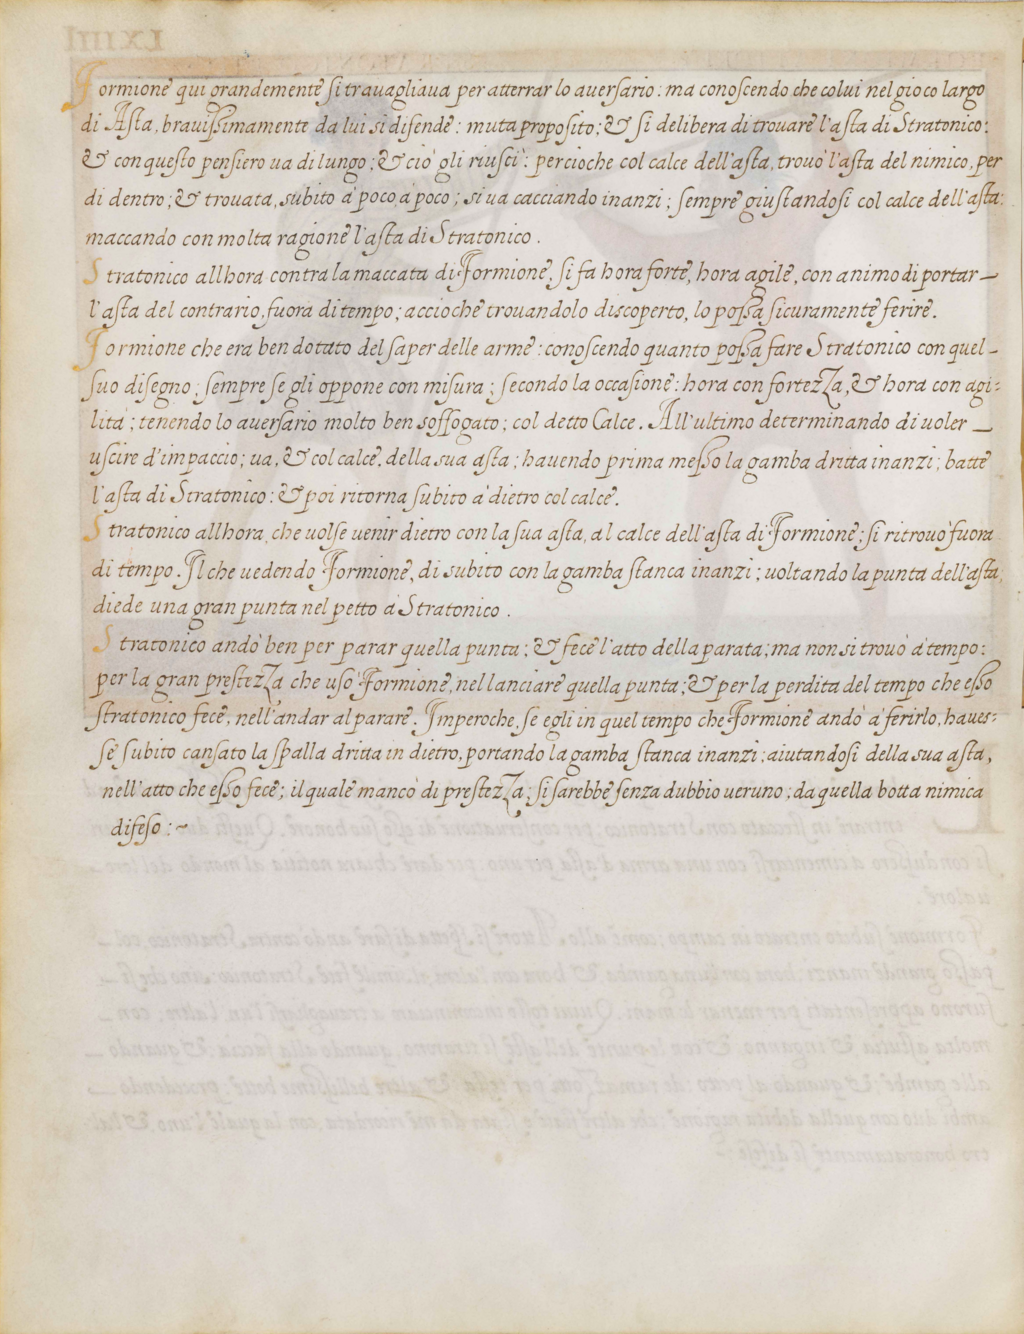 Formione qui grandemente si travagliava per atterrar lo aversario: ma conoscendo che colui nel gioco largo
di Asta, bravissimamente da lui si difende: muta proposito; & si delibera di trovare l'asta di Stratonico:
& con questo pensiero va di lungo; & ciò gli riuscì: percioche col calce dell'asta, trovò l'asta del nimico, per
di dentro; & trovata, subito à poco à poco; si va cacciando inanzi; sempre giustandosi col calce dell'asta:
maccando con molta ragione l'asta di Stratonico.
Stratonico allhora contra la maccata di Formione, si fa hora forte, hora agile, con animo di portar
l'asta del contrario, fuora di tempo; accioche trovandolo discoperto, lo possa sicuramente ferire.
Formione che era ben dotato del saper delle arme: conoscendo quanto possa fare Stratonico con quel
suo disegno; sempre se gli oppone con misura; secondo la occasione: hora con fortezza, & hora con agi=
lità; tenendo lo aversario molto ben soffogato; col detto Calce. All'ultimo determinando di voler
uscire d'impaccio; va, & col calce, della sua asta; havendo prima messo la gamba dritta inanzi; batte
l'asta di Stratonico: & poi ritorna subito à dietro col calce.
Stratonico allhora, che volse venir dietro con la sua asta, al calce dell'asta di Formione; si ritrovò fuora
di tempo. Il che vedendo Formione, di subito con la gamba stanca inanzi; voltando la punta dell'asta,
diede una gran punta nel petto à Stratonico.
Stratonico andò ben per parar quella punta; & fece l'atto della parata; ma non si trovò à tempo:
per la gran prestezza che usò Formione, nel lanciare quella punta; & per la perdita del tempo che esso
stratonico fece, nell'andar al parare. Imperoche, se egli in quel tempo che Formione andò à ferirlo, haves=
se subito cansato la spalla dritta in dietro, portando la gamba stanca inanzi; aiutandosi della sua asta,
nell'atto che esso fece; il quale mancò di prestezza; si sarebbe senza dubbio veruno; da quella botta nimica
difeso:~